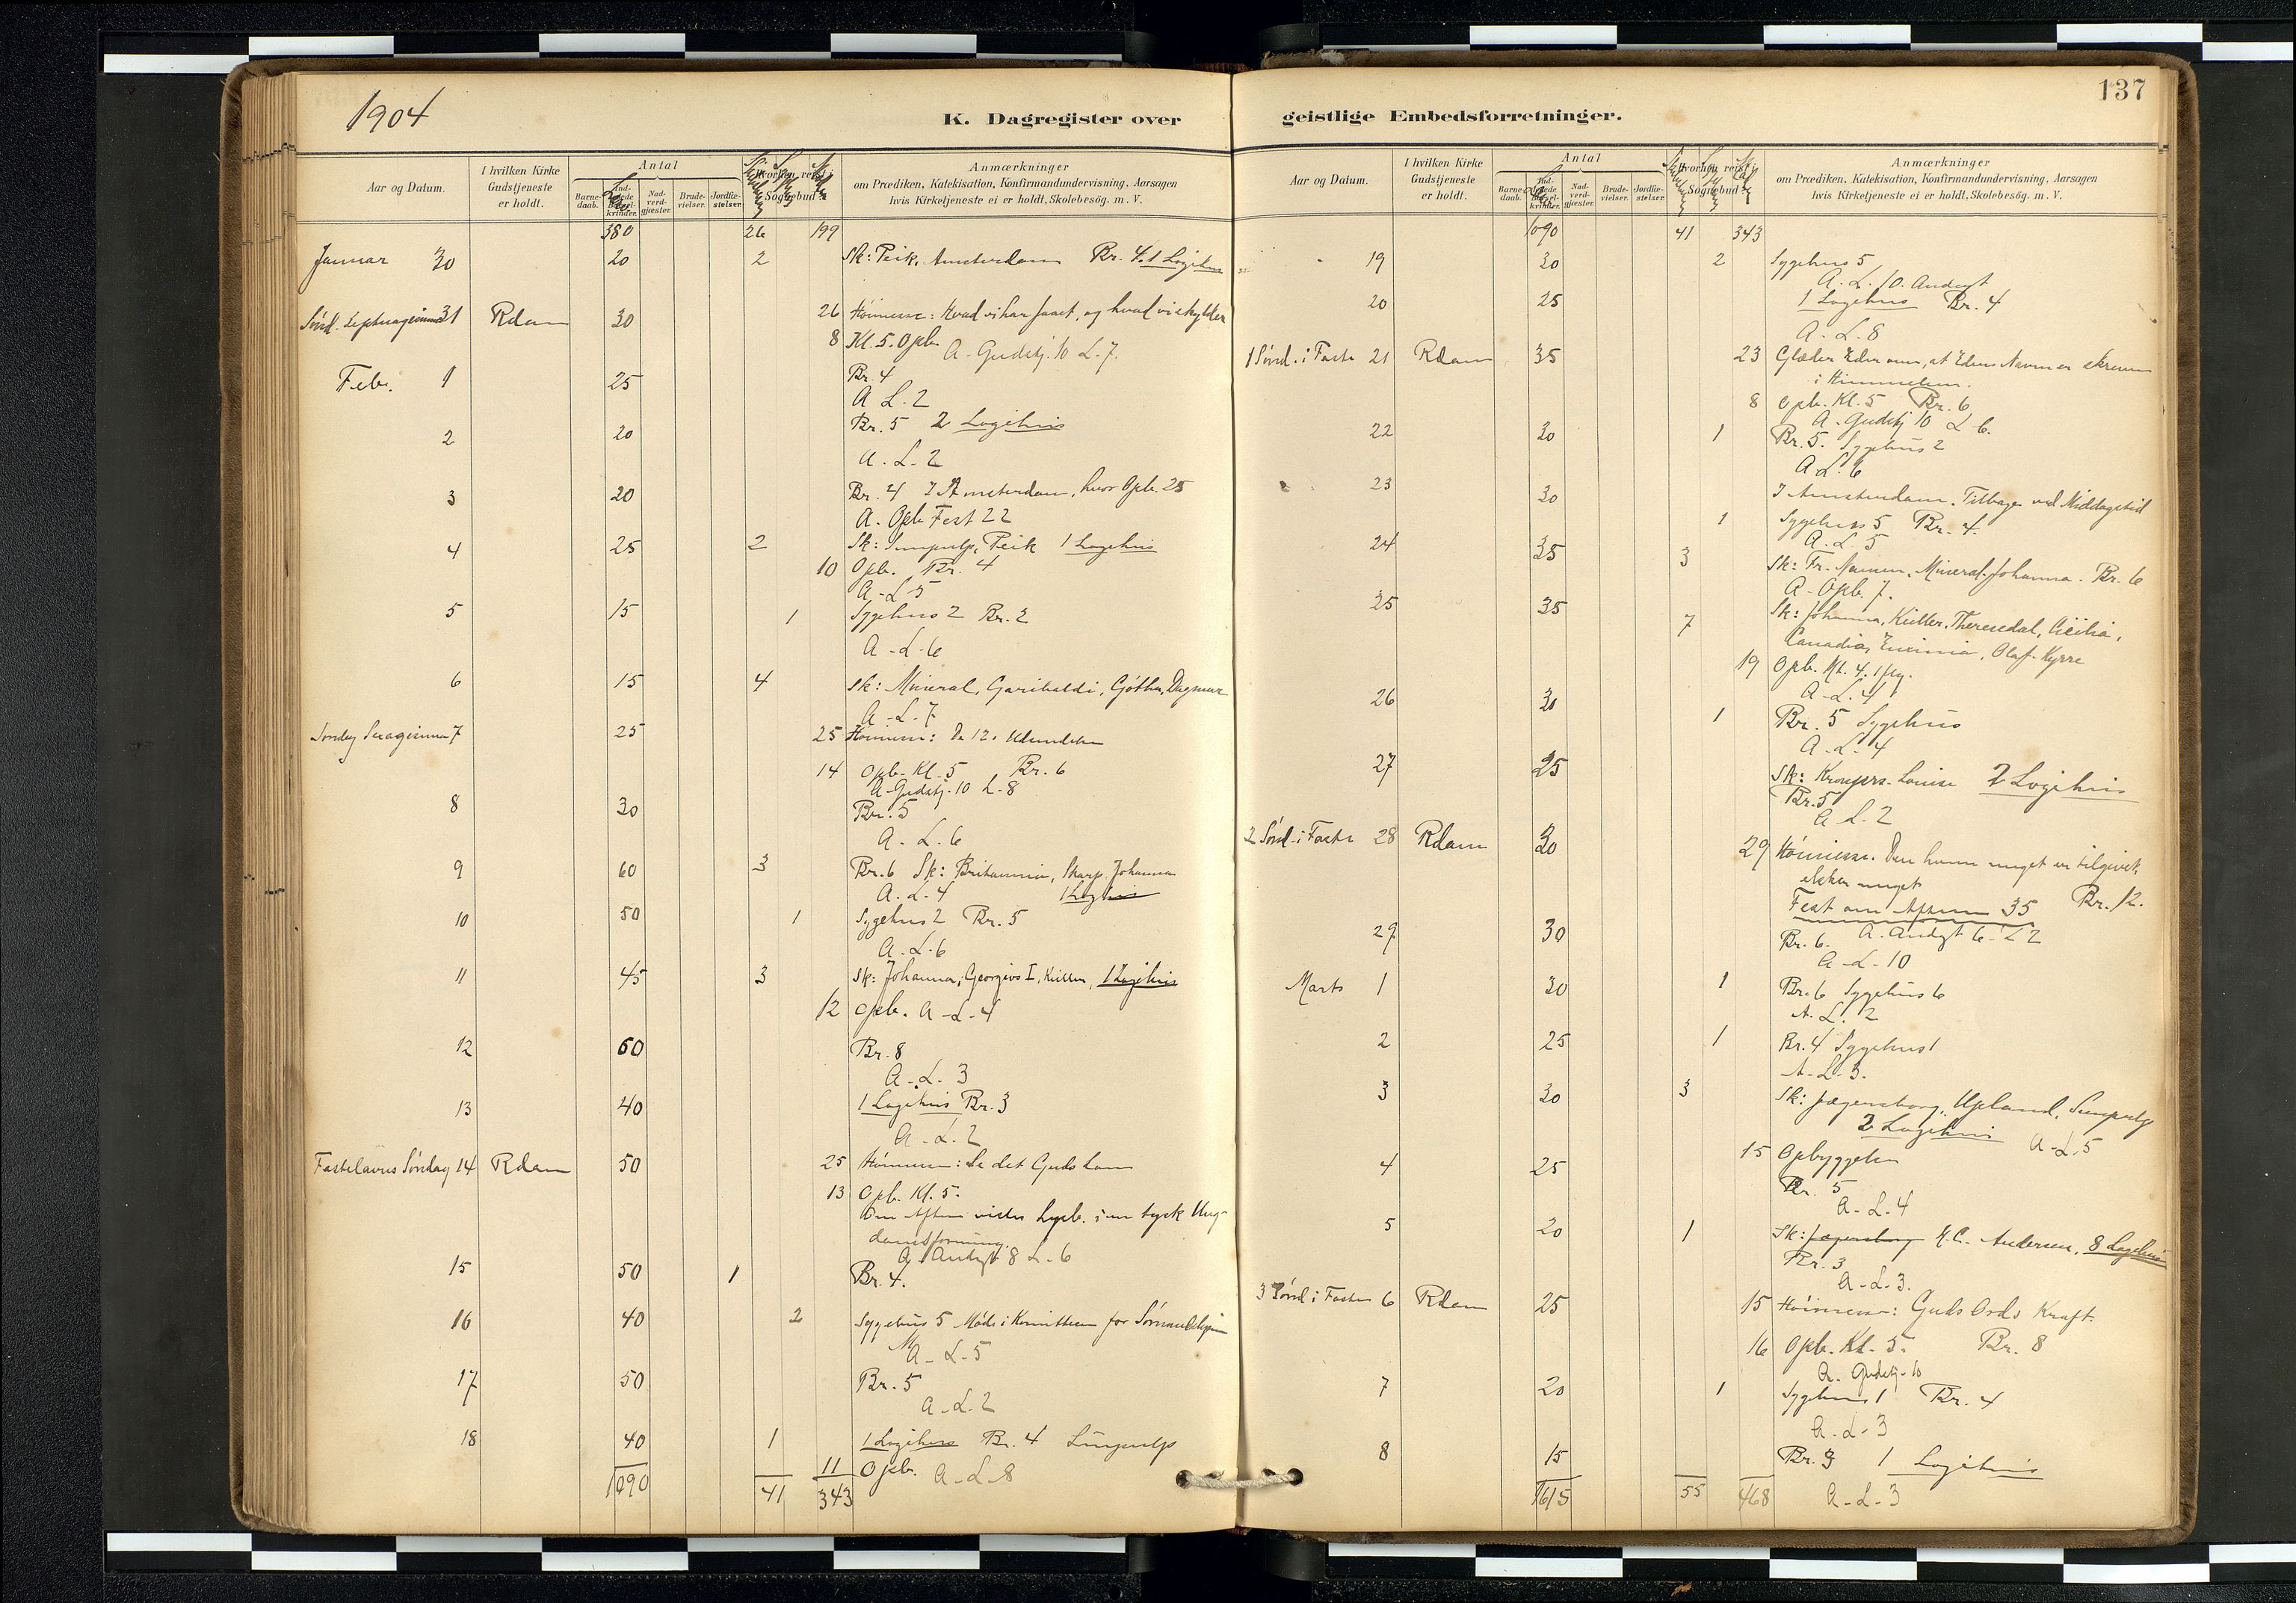 1904
K. Dagregister over
Aar og Datum.
I hvilken Kirke Gudstjeneste er holdt.
Antal
Barnedaab.
Nadverdgjæster
Brudevielser.
Jordfæstelser.
Hvorhen reist i Sognebud?
Anmærkninger
om Prædiken, Katekisation, Konfirmandundervisning, Aarsagen
hvis Kirketjeneste ei er holdt, Skolebesög. m. V.
380 26 199
Januar 30 20 2 Sk: Peik, Amsterdam Br. 4. 1 Logihus
Sønd. Septuagesima 31 Rdam 30 26 Höimesse: Hvad vi har faaet, og hvad vi skylder
8 Kl. 5. Opb. A- Gudstj. 10 L. 7.
Feb. 1 25 Br. 4
A L. 2
2 20 Br. 5 2 Logihus
A. L. 2
3 20 Br. 4 I Amsterdam, hvor Opb. 25
A. Opb Fest 22
4 25 2 Sk: Sunpulp, Peik 1 Logihus
10 Opb. Br. 4
A-L 5
5 15 1 Sygehus 2 Br. 2
A-L-6
6 15 4 Sk: Mineral, Garibaldi, Götha, Dagmar
A-L-7
Søndag Sexagesima 7 25 25 Höimesse: De 12. Udsendelse
14 Opb. Kl. 5 Br. 6
A-Gudstj. 10 L-8
8 30 Br. 5
A. L. 6
9 60 3 Br. 6 Sk: Britannia, Skarp, Johanna
A. L. 4 1 Logihus
10 50 1 Sygehus 2 Br. 5
A. L. 6
11 45 3 Sk: Johanna, Georgios I, Küller, 1 Logihus
12 Opb. A-L-4
12 60 Br. 8
A-L. 3
13 40 1 Logihus Br. 3
A-L. 2
Fastelavns Søndag 14 Rdam 50 25 Höimesse: Se det Guds Lam
13 Opb. Kl. 5.
Om Aften vistes Lysb. i en tysk Ung-
domsforening.
A. Andagt 8 L-6
15 50 1 Br. 4.
16 40 2 Sygehus 5 Möde i Komitteen for
A-L-5
17 50 Br. 5
A-L. 2
18 40 1 1 Logihus Br. 4 Sunpulp
11 Opb. A-L-8
1090 41 343
137
geistlige Embedsforretninger.
Aar og Datum.
I hvilken Kirke Gudstjeneste er holdt.
Antal
Barnedaab.
Nadverdgjæster
Brudevielser.
Jordfæstelser.
Hvorhen reist i Sognebud?
Anmærkninger
om Prædiken, Katekisation, Konfirmandundervisning, Aarsagen
hvis Kirketjeneste ei er holdt, Skolebesög. m. V.
1090 41 343
19 30 2 Sygehus 5
A. L. 10. Andagt
20 25 1 Logihus Br. 4
A-L-8
1 Sönd. i Faste 21 Rdam 35 23 Glæder Eder over, at Eders Navn er skreven
i Himmelen.
8 Opb. Kl. 5 Br. 6
A. Gudstj 10 L 6.
22 30 1 Br. 5. Sygehus 2
A L. 6
23 30 I Amsterdam. Tilbage ved Middagstid
1 Sygehus 5 Br. 4.
A. L. 5
24 35 3 Sk: Fr. Nansen, Mineral, Johanna. Br. 6
A- Opb. 7.
25 35 7 Sk: Johanna, Küller, Theresedal, Cecilia,
Canadia, Olaf Kyrre
19 Opb. Kl. 4.
A-L. 4
26 30 1 Br. 5 Sygehus
A-L. 4
27 25 Sk: Kronprs. Louise 2 Logihus
Br. 5
A L. 2
2 Sönd. i Faste 28 Rdam 30 29 Höimesse. Den hvem meget er tilgivet,
elsker meget
Fest om Aftenen 35 Br. 12.
29 30 Br. 6. A. Andagt 6- L 2
A-L-10
Marts 1 30 1 Br. 6 Sygehus 6
A. L. 2
2 25 1 Br. 4 Sygehus 1
A-L-3.
3 30 3 Sk: Jægersborg, Upland, Sunpulp
2 Logihus A-L. 5
15 Opbyggelse
4 25 Br. 5
A-L. 4
5 20 1 Sk: Jægersborg H. C. Andersen, 8 Logihus
Br. 3
A-L-3.
3 Sönd. i Faste 6 Rdam 25 15 Höimesse: Guds Ords Kraft.
16 Opb. Kl. 5. Br. 8
A. Gudstj-10
7 20 1 Sygehus 1 Br. 4
A-L-3
8 15 Br. 3 1 Logihus
1615 55 468 A-L-3